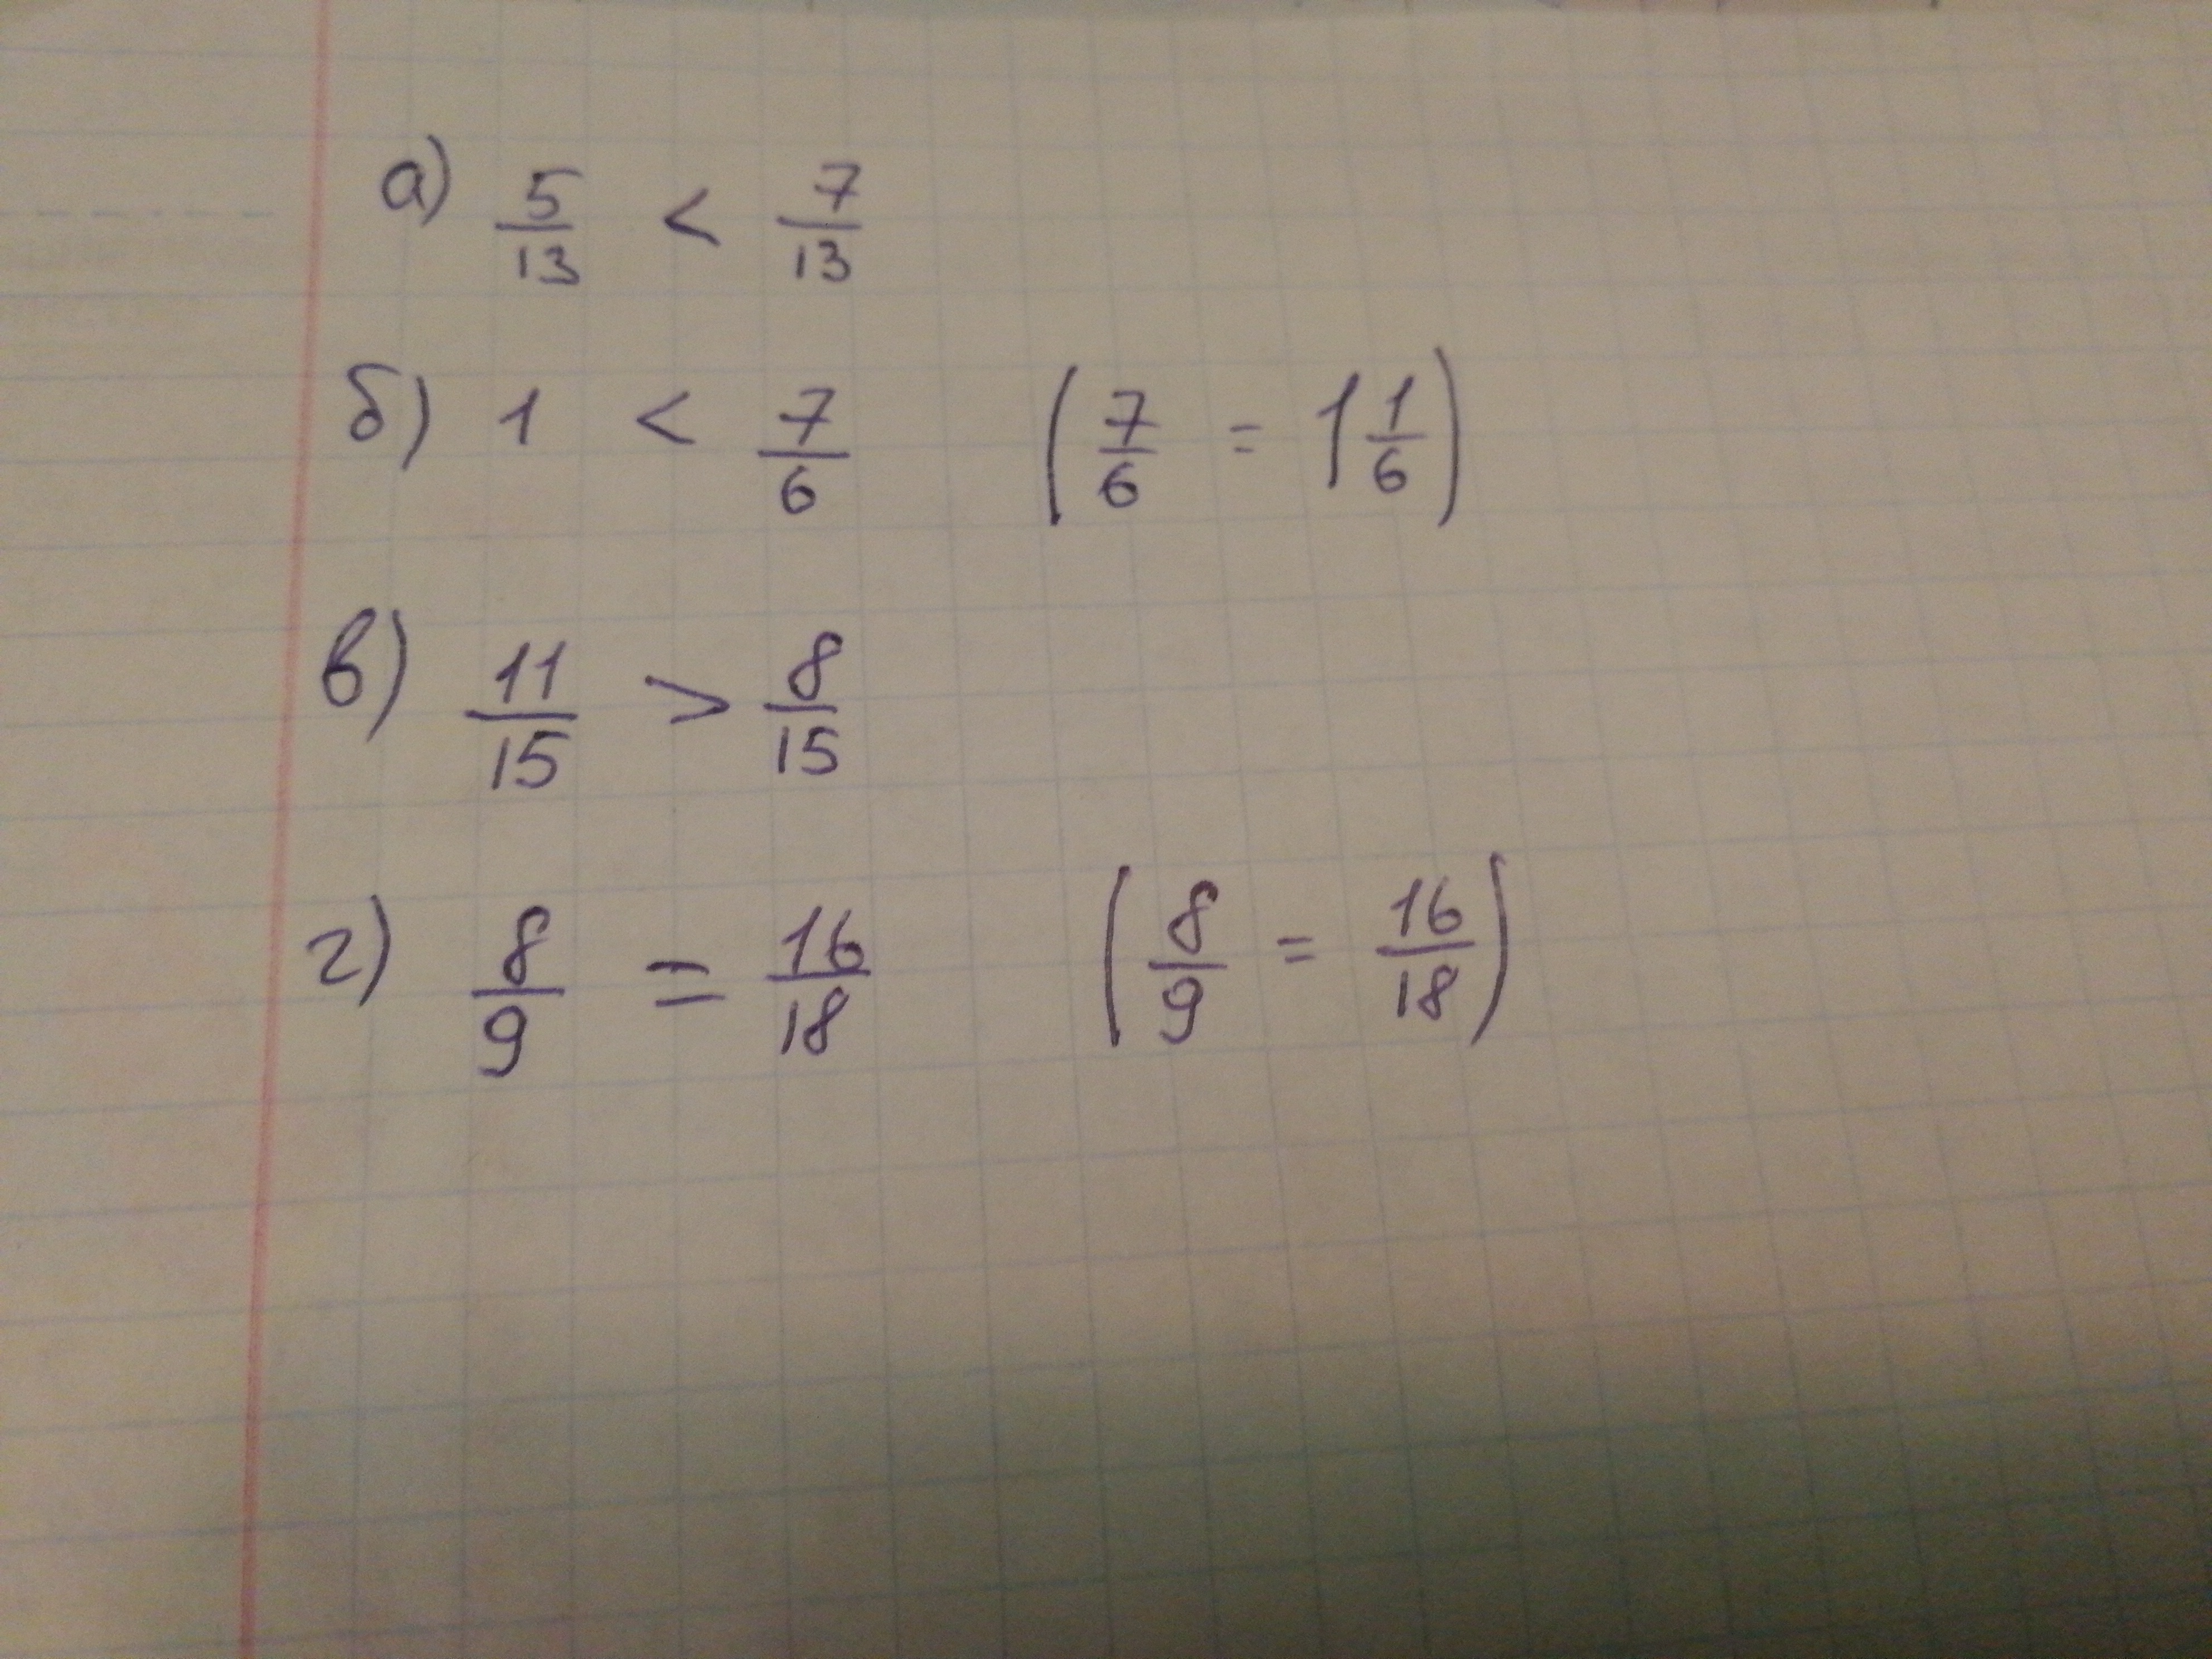 а) 5/13 < 7/13
б) 1 < 7/6 (7/6 = 1 1/6)
в) 11/15 > 8/15
г) 8/9 = 16/18 (8/9 = 16/18)